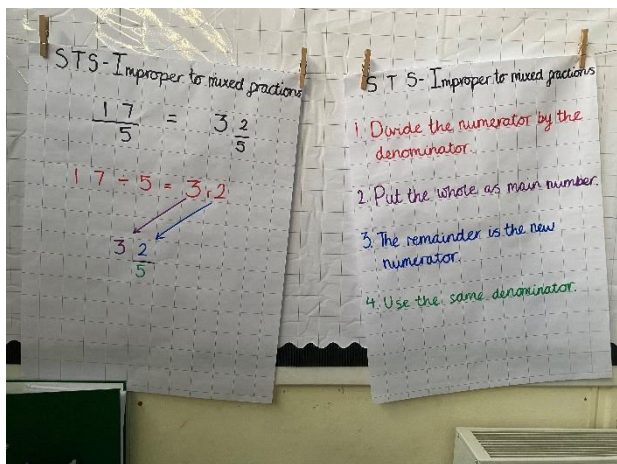 STS - Improper to mixed fractions
17/5 = 3 2/5
17 ÷ 5 = 3r2
3 2/5
STS - Improper to mixed fractions
1. Divide the numerator by the
denominator.
2. Put the whole as main number.
3. The remainder is the new
numerator.
4. Use the same denominator.